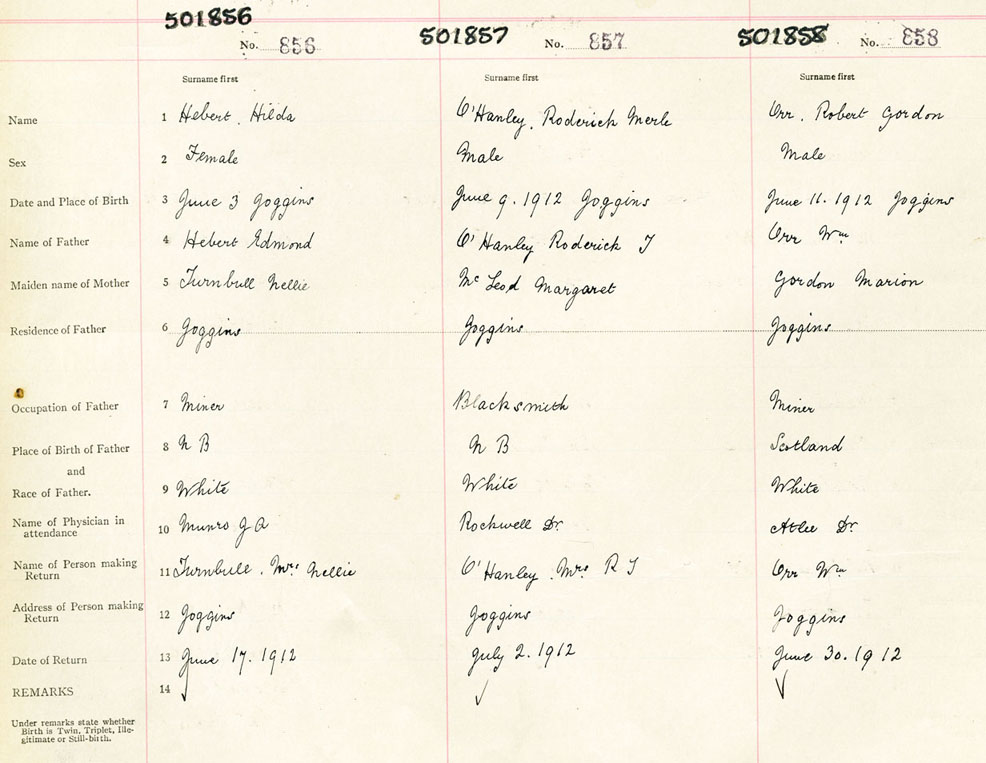 501856 501857 501858
No. 856 No. 857 No. 858
Surname first Surname first Surname first
Name 1 Hebert, Hilda O'Hanley, Roderick Merle Orr, Robert Gordon
Sex 2 Female Male Male
Date and Place of Birth 3 June 3 Joggins June 9. 1912 Joggins June 11. 1912 Joggins
Name of Father 4 Hebert Edmond O'Hanley Roderick J Orr Wm
Maiden name of Mother 5 Turnbull Nellie McLeod Margaret Gordon Marion
Residence of Father 6 Joggins Joggins Joggins
Occupation of Father 7 Miner Blacksmith Miner
Place of Birth of Father 8 N B N B Scotland
and
Race of Father. 9 White White White
Name of Physician in
attendance 10 Munro J A Rockwell Dr. Dr.
Name of Person making
Return 11 Turnbull, Mrs Nellie O'Hanley, Mrs R J Orr Wm
Address of Person making
Return 12 Joggins Joggins Joggins
Date of Return 13 June 17. 1912 July 2. 1912 June 30. 1912
REMARKS 14 ✓ ✓ ✓
Under remarks state whether
Birth is Twin, Triplet, Ille-
gitimate or Still-birth.